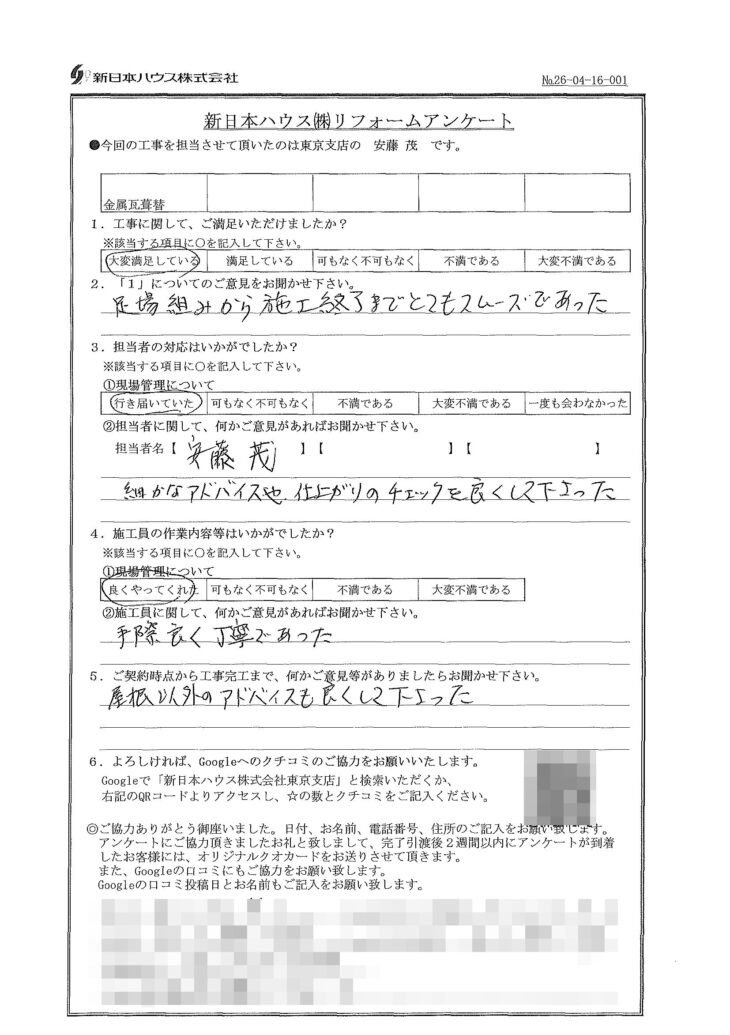 新日本ハウス株式会社
№26-04-16-001
新日本ハウス㈱リフォームアンケート
●今回の工事を担当させて頂いたのは東京支店の 安藤 茂 です。
金属瓦葺替
1．工事に関して、ご満足いただけましたか？
※該当する項目に○を記入して下さい。
大変満足している 満足している 可もなく不可もなく 不満である 大変不満である
2．「1」についてのご意見をお聞かせ下さい。
足場組みから施工終了までとてもスムーズであった
3．担当者の対応はいかがでしたか？
※該当する項目に○を記入して下さい。
①現場管理について
行き届いていた 可もなく不可もなく 不満である 大変不満である 一度も会わなかった
②担当者に関して、何かご意見があればお聞かせ下さい。
担当者名【 安藤 茂 】【 】【 】
細かなアドバイスや、仕上がりのチェックを良くして下さった
4．施工員の作業内容等はいかがでしたか？
※該当する項目に○を記入して下さい。
①現場管理について
良くやってくれた 可もなく不可もなく 不満である 大変不満である
②施工員に関して、何かご意見があればお聞かせ下さい。
手際良く丁寧であった
5．ご契約時点から工事完工まで、何かご意見等がありましたらお聞かせ下さい。
屋根以外のアドバイスも良くして下さった
6．よろしければ、Googleへのクチコミのご協力をお願いいたします。
Googleで「新日本ハウス株式会社東京支店」と検索いただくか、
右記のQRコードよりアクセスし、☆の数とクチコミをご記入ください。
◎ご協力ありがとう御座いました。日付、お名前、電話番号、住所のご記入をお願い致します。
アンケートにご協力頂きましたお礼と致しまして、完了引渡後2週間以内にアンケートが到着
したお客様には、オリジナルクオカードをお送りさせて頂きます。
また、Googleの口コミにもご協力をお願い致します。
Googleの口コミ投稿日とお名前もご記入をお願い致します。